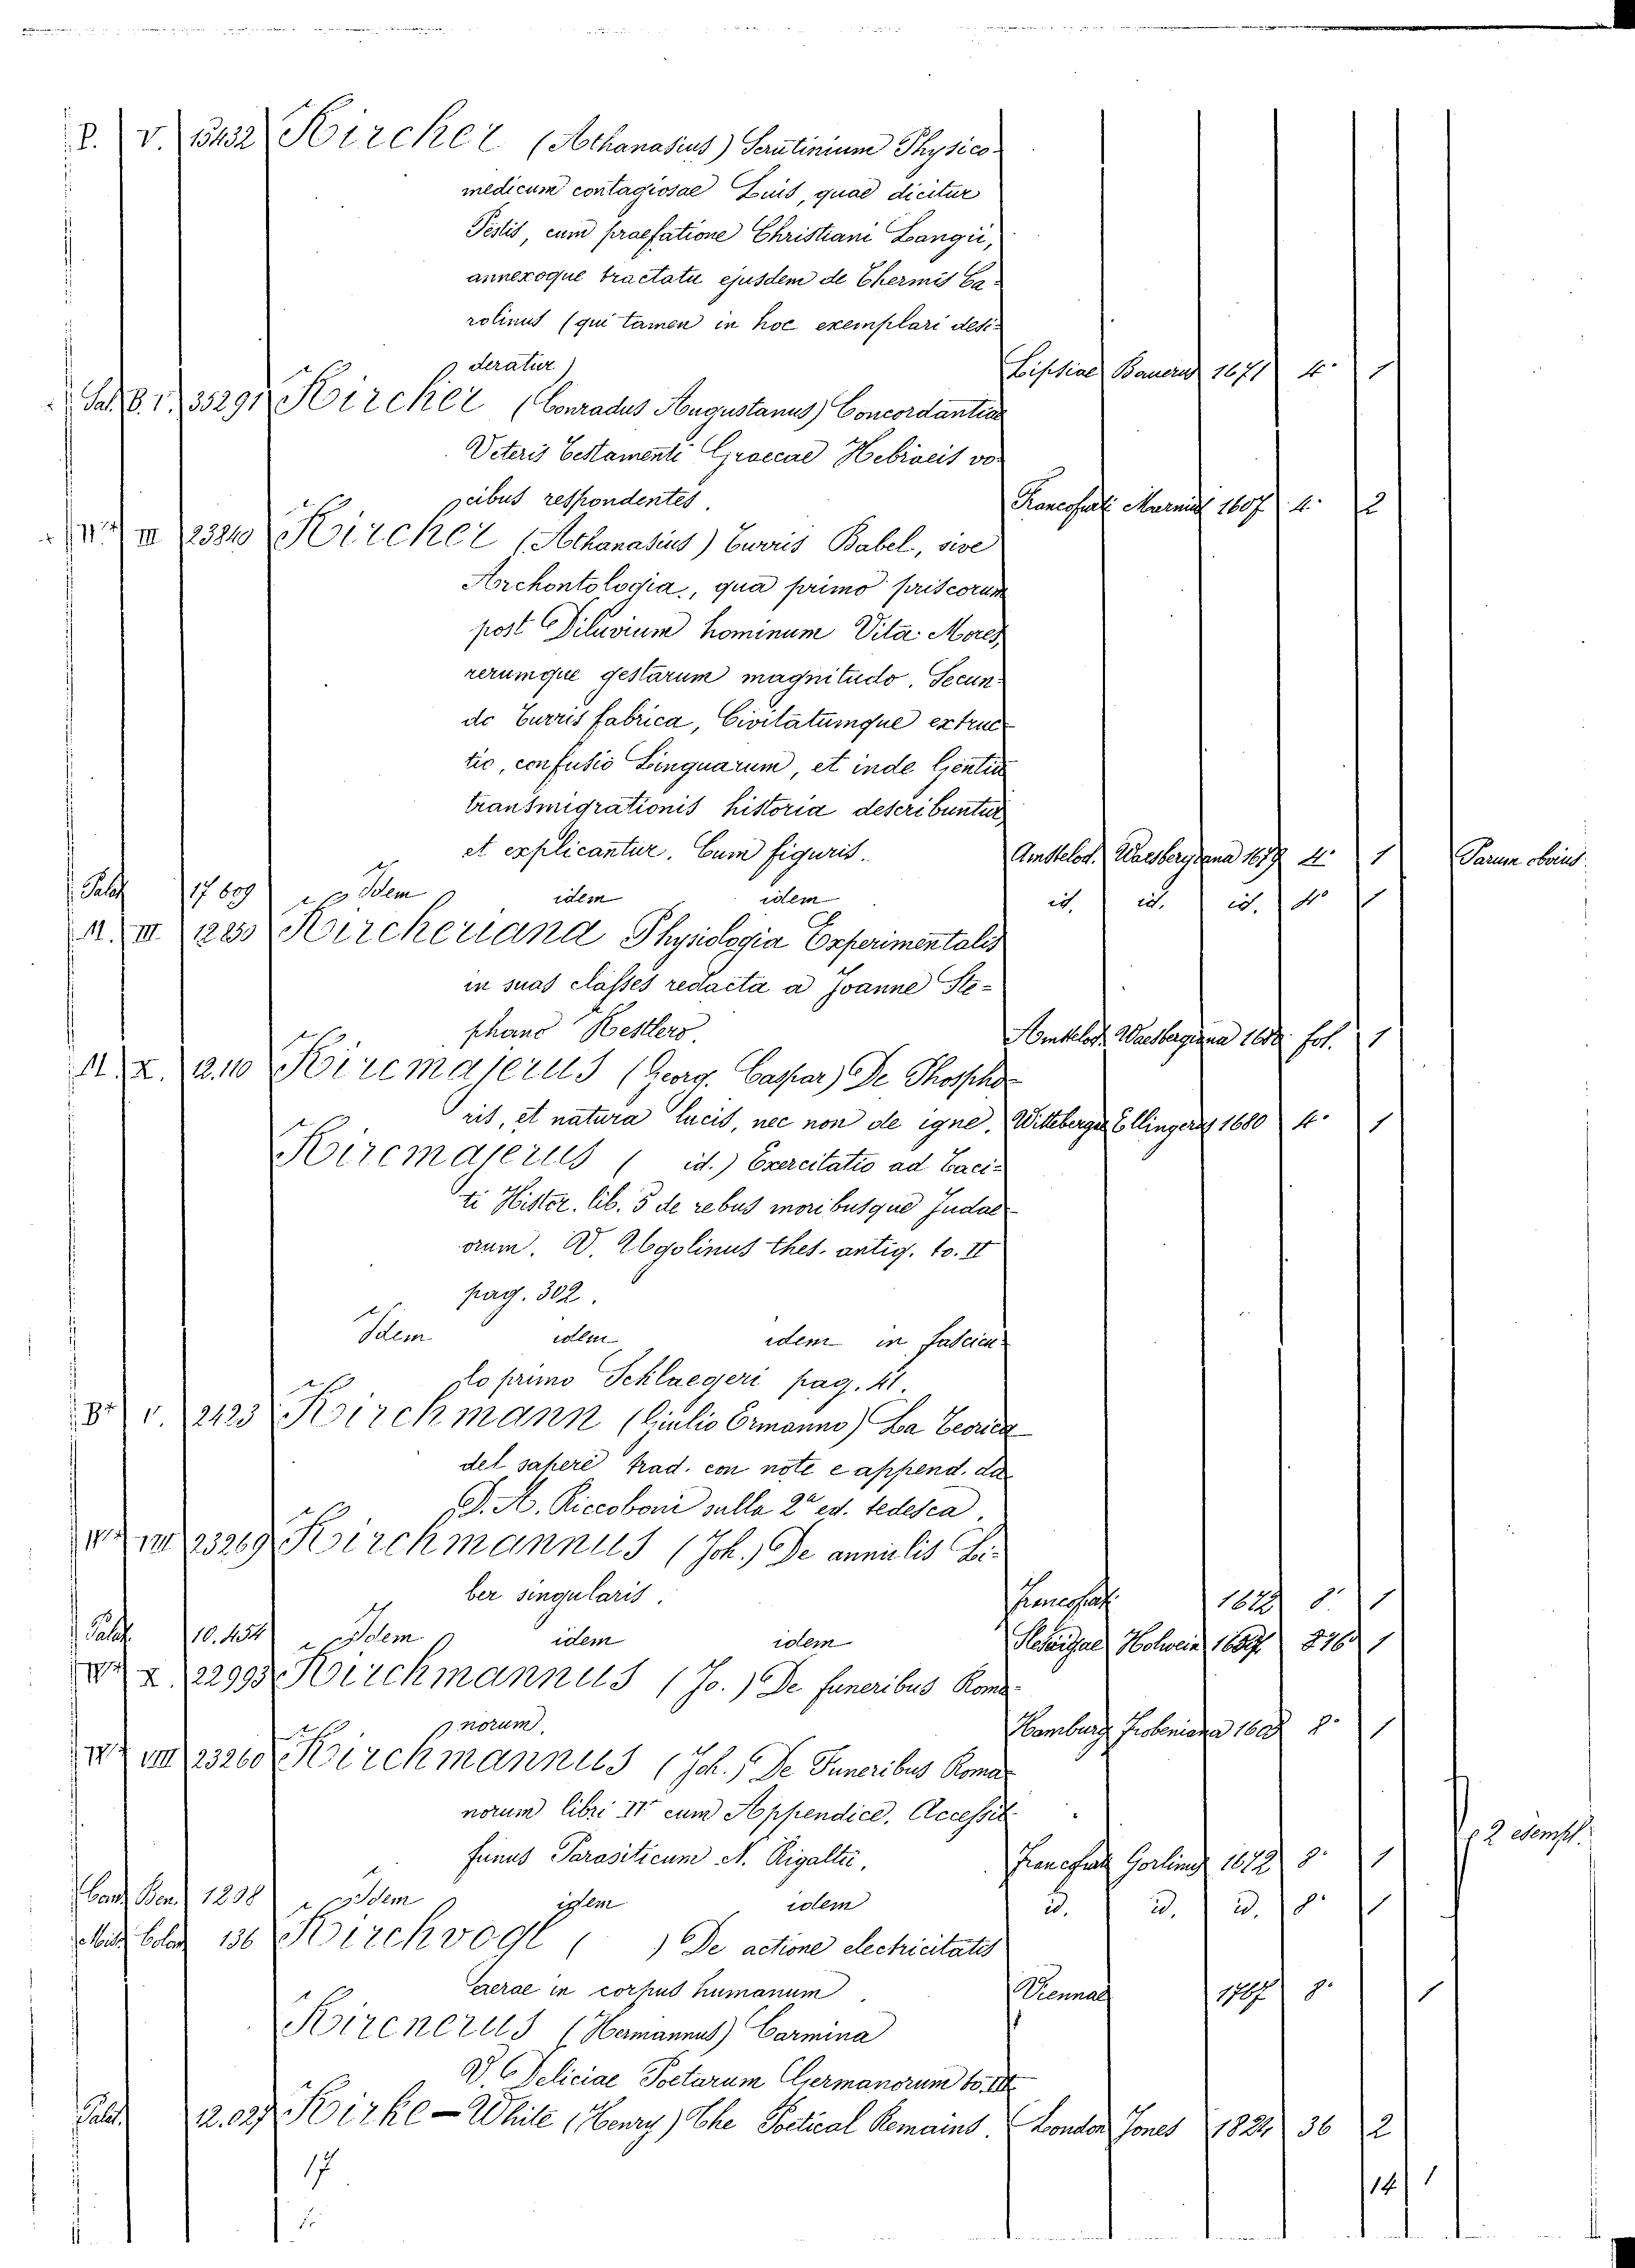 P. V. 15432 Kircher (Athanasius) Scrutinium Physico-
medicum contagiosae Luis, quae dicitur
Pestis, cum praefatione Christiani Langii,
annexoque tractatu ejusdem de Thermis Ca-
rolinus (qui tamen in hoc exemplari desi-
deratur) Lipsiae Bauerus 1671 4° 1
Sal. B. V. 35291 Kircher (Conradus Augustanus) Concordantiae
Veteris Testamenti Graecae Hebraeis vo-
cibus respondentes. Francofurti Marnius 1607 4° 2
III 23840 Kircher (Athanasius) Turris Babel, sive
Archontologia, qua primo priscorum
post Diluvium hominum Vita Mores,
rerumque gestarum magnitudo. Secun-
do Turris fabrica, Civitatumque extruc-
tio, confusio Linguarum, et inde Gentium
transmigrationis historia describuntur,
et explicantur. Cum figuris. Amstelod. Waesbergiana 1679 4° 1
Palat 17609 Idem idem idem id. id. id. 4° 1
11. III 12830 Kircheriana Physiologia Experimentalis
in suas classes redacta a Joanne Ste-
phano Kestlero. Amstelod. Waesbergiana 1680 fol. 1
11. X. 2.110 Kircmajerus (Georg. Caspar) De Phospho-
ris, et natura lucis, nec non de igne. Witteberge Ellingerus 1680 4° 1
Kircmajerus ( id.) Exercitatio ad Taci-
ti Histor. lib. 5 de rebus moribusque Judae-
orum. V. Ugolinus thes. antiq. to. II
pag. 302.
Idem idem idem in fascicu-
lo primo Schlaegeri pag. 41.
V. 2423 Kirchmann (Giulio Ermanno) La Teorica
del sapere trad. con note e append. da
D. A. Riccoboni sulla 2ª ed. tedesca.
VIII 23269 Kirchmannus (Joh.) De annulis Li-
ber singularis. Francofurt. 1672 8. 1
Palat. 10.454 Idem idem idem Slesvigae Holwein 1657 8° 1
X 22993 Kirchmannus (Jo.) De funeribus Roma-
norum. Hamburg Frobeniana 1605 8° 1
VIII 23260 Kirchmannus (Joh.) De Funeribus Roma-
norum libri IV cum Appendice. Accessit
funus Parasiticum N. Rigaltii. Francofurt Gorlinus 1672 8° 1
2 esempl.
1298 Idem idem idem id. id. id. 8° 1
136 Kirchvogl ( ) De actione electricitatis
aerae in corpus humanum. Viennae 1767 8° 1
Kirchnerus (Hermannus) Carmina
V. Deliciae Poetarum Germanorum to. III
Palat. 12.027 Kirke-White (Henry) The Poetical Remains. London Jones 1824 36 2
17
14 1